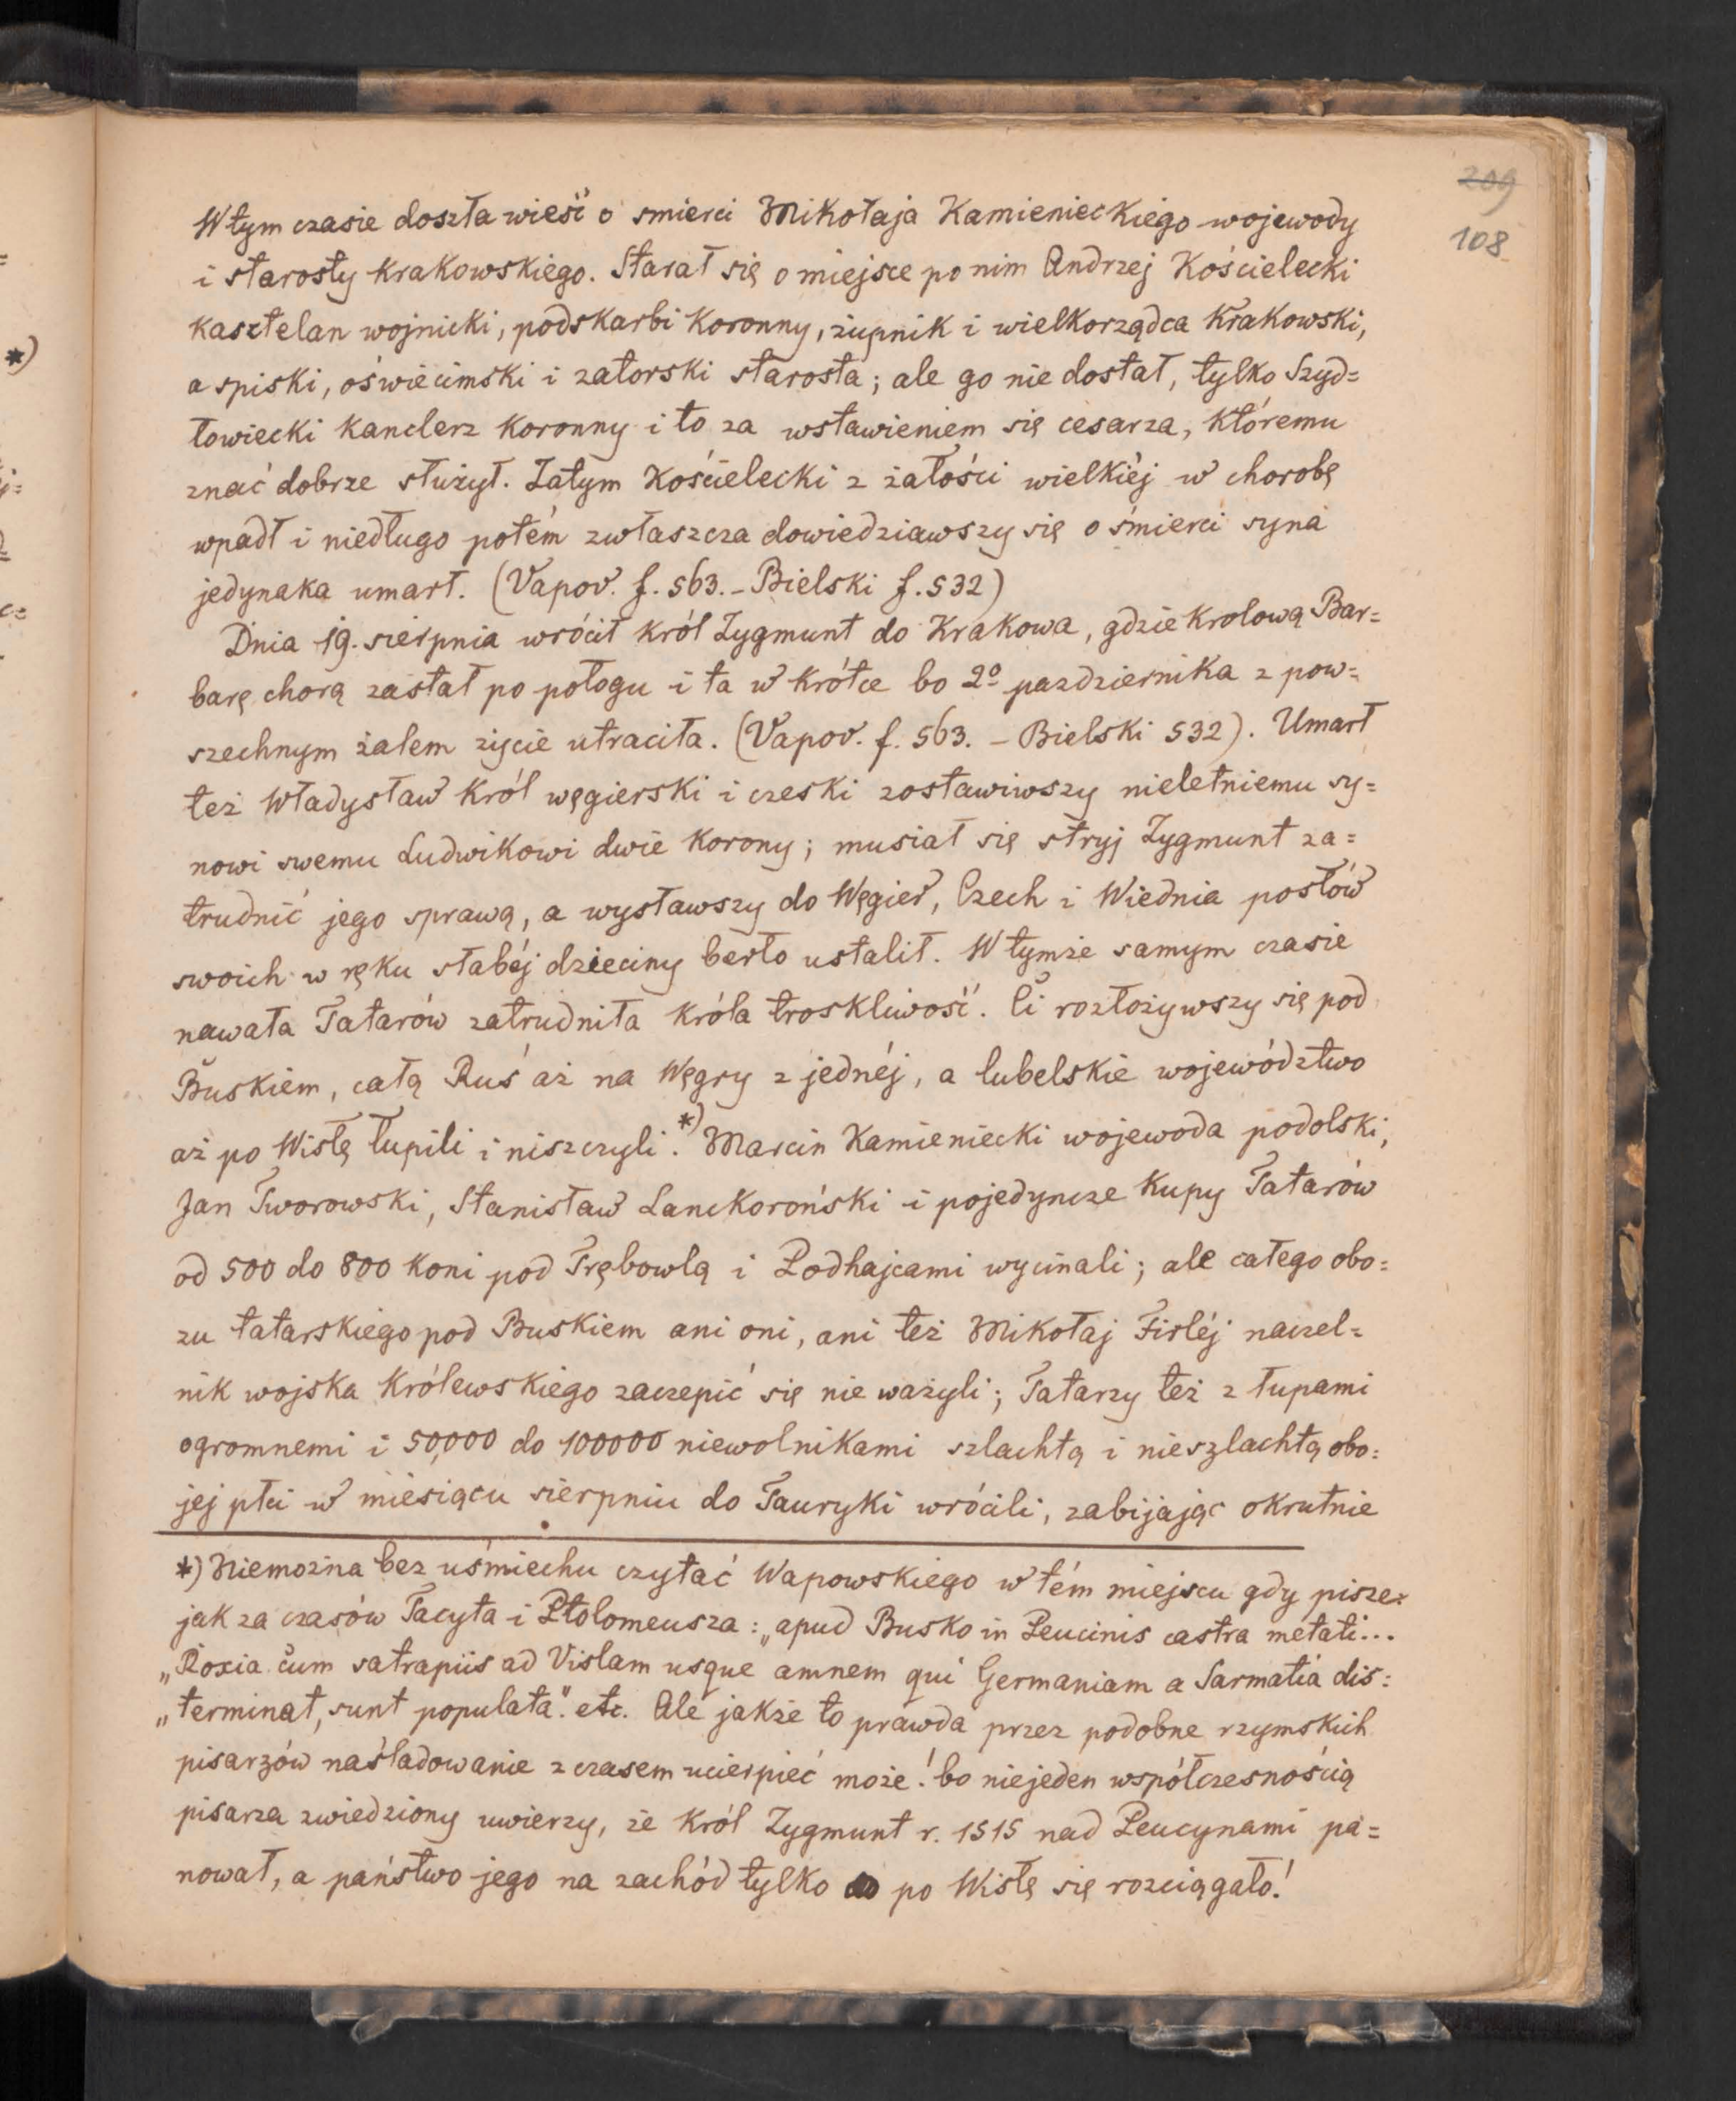 209
108
W tym czasie doszła wieść o smierci Mikołaja Kamienieckiego wojewody
i starosty krakowskiego. Starał się o miejsce po nim Andrzej Kościelecki
kasztelan wojnicki, podskarbi koronny, żupnik i wielkorządca krakowski,
a spiski, oświecimski i zatorski starosta; ale go nie dostał, tylko Szyd=
łowiecki kanclerz koronny i to za wstawieniem się cesarza, któremu
znać dobrze służył. Zatym Kościelecki z żałości wielkiéj w chorobę
wpadł i niedługo potém zwłaszcza dowiedziawszy się o śmierci syna
jedynaka umarł. (Vapov. f. 563. - Bielski f. 532)
Dnia 19. sierpnia wrócił król Zygmunt do Krakowa, gdzie krolową Bar=
barę chorą zastał po połogu i ta w krótce bo 2º pazdziernika z pow=
szechnym żalem życie utraciła. (Vapov. f. 563. - Bielski 532). Umarł
też Władysław król węgierski i czeski zostawiwszy nieletniemu sy=
nowi swemu Ludwikowi dwie korony; musiał się stryj Zygmunt za=
trudnić jego sprawą, a wysławszy do Węgier, Czech i Wiednia posłów
swoich w ręku słabéj dzieciny berło ustalił. W tymże samym czasie
nawała Tatarów zatrudniła króla troskliwość. Ci rozłożywszy się pod
Buskiem, całą Ruś aż na Węgry z jednéj, a lubelskie województwo
aż po Wisłę łupili i niszczyli.*) Marcin Kamieniecki wojewoda podolski,
Jan Tworowski, Stanisław Lanckoroński i pojedyncze kupy Tatarów
od 500 do 800 koni pod Trębowlą i Podhajcami wycinali; ale całego obo=
zu tatarskiego pod Buskiem ani oni, ani też Mikołaj Firléj naczel=
nik wojska królewskiego zaczepić się nie ważyli; Tatarzy też z łupami
ogromnemi i 50,000 do 100000 niewolnikami szlachtą i nieszlachtą obo=
jej płci w miesiącu sierpniu do Tauryki wrócili, zabijając okrutnie
*) Niemożna bez uśmiechu czytać Wapowskiego w tém miejscu gdy pisze:
jak za czasów Tacyta i Ptolomeusza: „apud Busko in Peucinis castra metati...
„Roxia cum satrapiis ad Vislam usque amnem qui Germaniam a Sarmatia dis=
„terminat, sunt populata". etc. Ale jakże to prawda przez podobne rzymskich
pisarzów naśladowanie z czasem ucierpieć może! bo niejeden współczesnością
pisarza zwiedziony uwierzy, że król Zygmunt r. 1515 nad Peucynami pa=
nował, a państwo jego na zachód tylko po Wisłę się rozciągało!
*)